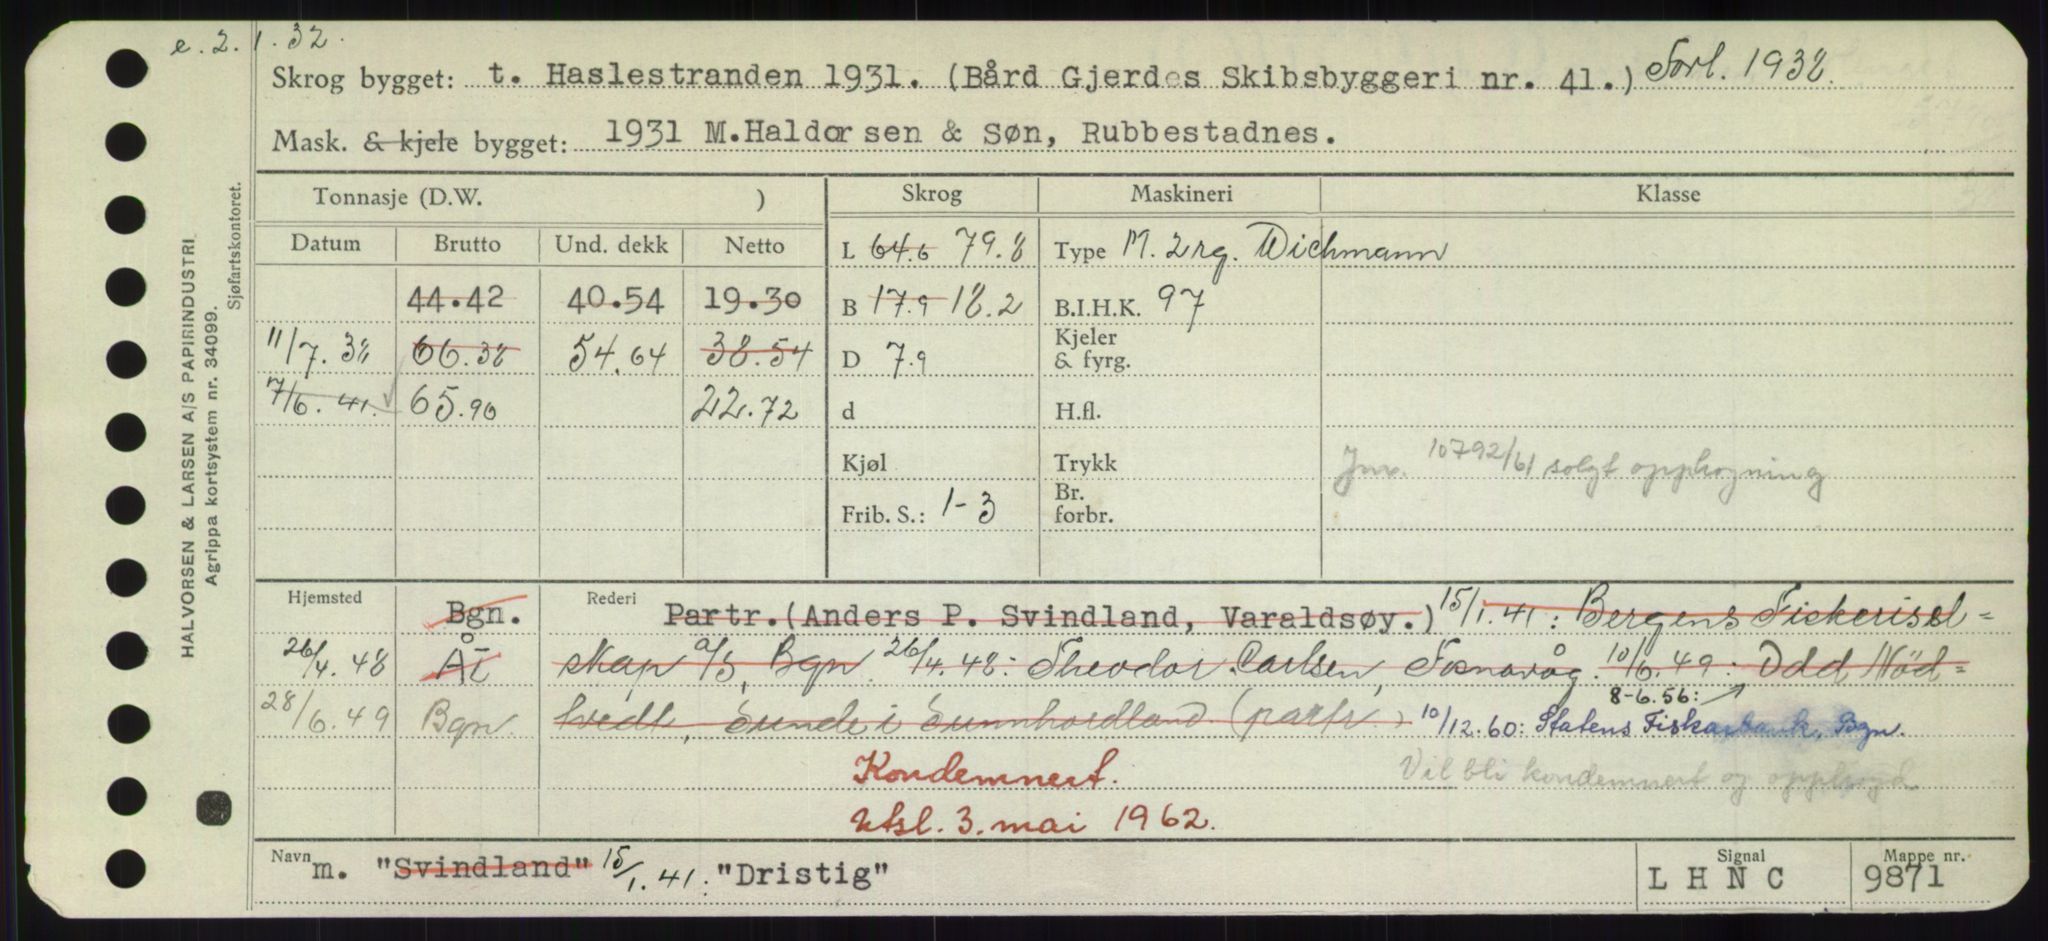 e. 2. 1. 32.
Skrog bygget: t. Haslestranden 1931. (Bård Gjerdes Skibsbyggeri nr. 41.) Forl. 1938.
Mask. & kjele bygget: 1931 M.Haldorsen & Søn, Rubbestadnes.
HALVORSEN & LARSEN A/S PAPIRINDUSTRI
Agrippa kortsystem nr. 34099.
Sjøfartskontoret.
Tonnasje (D.W. ) Skrog Maskineri Klasse
Datum Brutto Und. dekk Netto L 64.6 79.8 Type M. 2 rg. Wichmann
44.42 40.54 19.30 B 17.9 18.2 B.I.H.K. 97
11/7. 38 66.38 54.64 38.54 D 7.9 Kjeler & fyrg.
7/6. 41. 65.90 22.72 d H.fl.
Kjøl Trykk Jnr. 10792/61 solgt opphogning
Frib. S.: 1-3 Br. forbr.
Hjemsted Bgn. Rederi Partr.(Anders P. Svindland, Varaldsøy.) 15/1.41: Bergens Fiskerisel-
26/4. 48 Ål skap a/s, Bgn. 26/4.48: Theodor Carlsen, Fosnavåg. 10/6.49: Odd Nød-
8-6.56:
28/6.49 Bgn. tvedt, Sunde i Sunnhordland (partr.) 10/12.60: Statens Fiskarbank, Bgn.
Kondemnert. Vil bli kondemnert og opphogd
Utsl. 3. mai 1962.
Navn m. "Svindland" 15/1.41: "Dristig" Signal L H N C Mappe nr. 9871